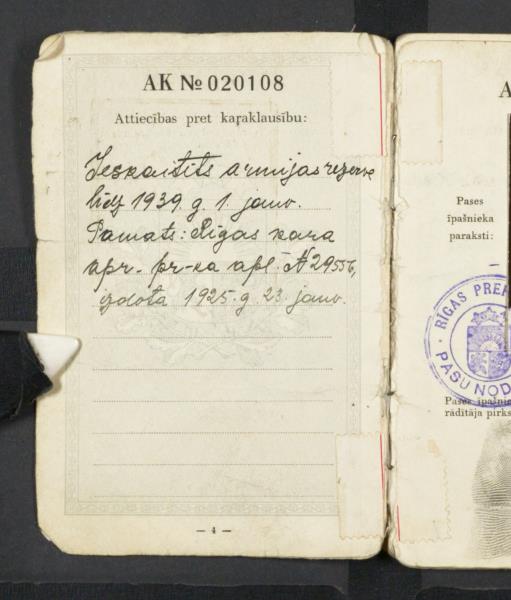 AK № 020108
Attiecības pret karaklausību:
Ieskaitīts armijas rezervē
līdz 1939. g. 1. janv.
Pamats: Rīgas kara
apr. pr-ka apl. N 29556,
izdota 1925. g. 23. janv.
— 4 —
A
Pases
īpašnieka
paraksti:
RĪGAS PREF
PASU NOD
Pases īpašnie
rādītāja pirks